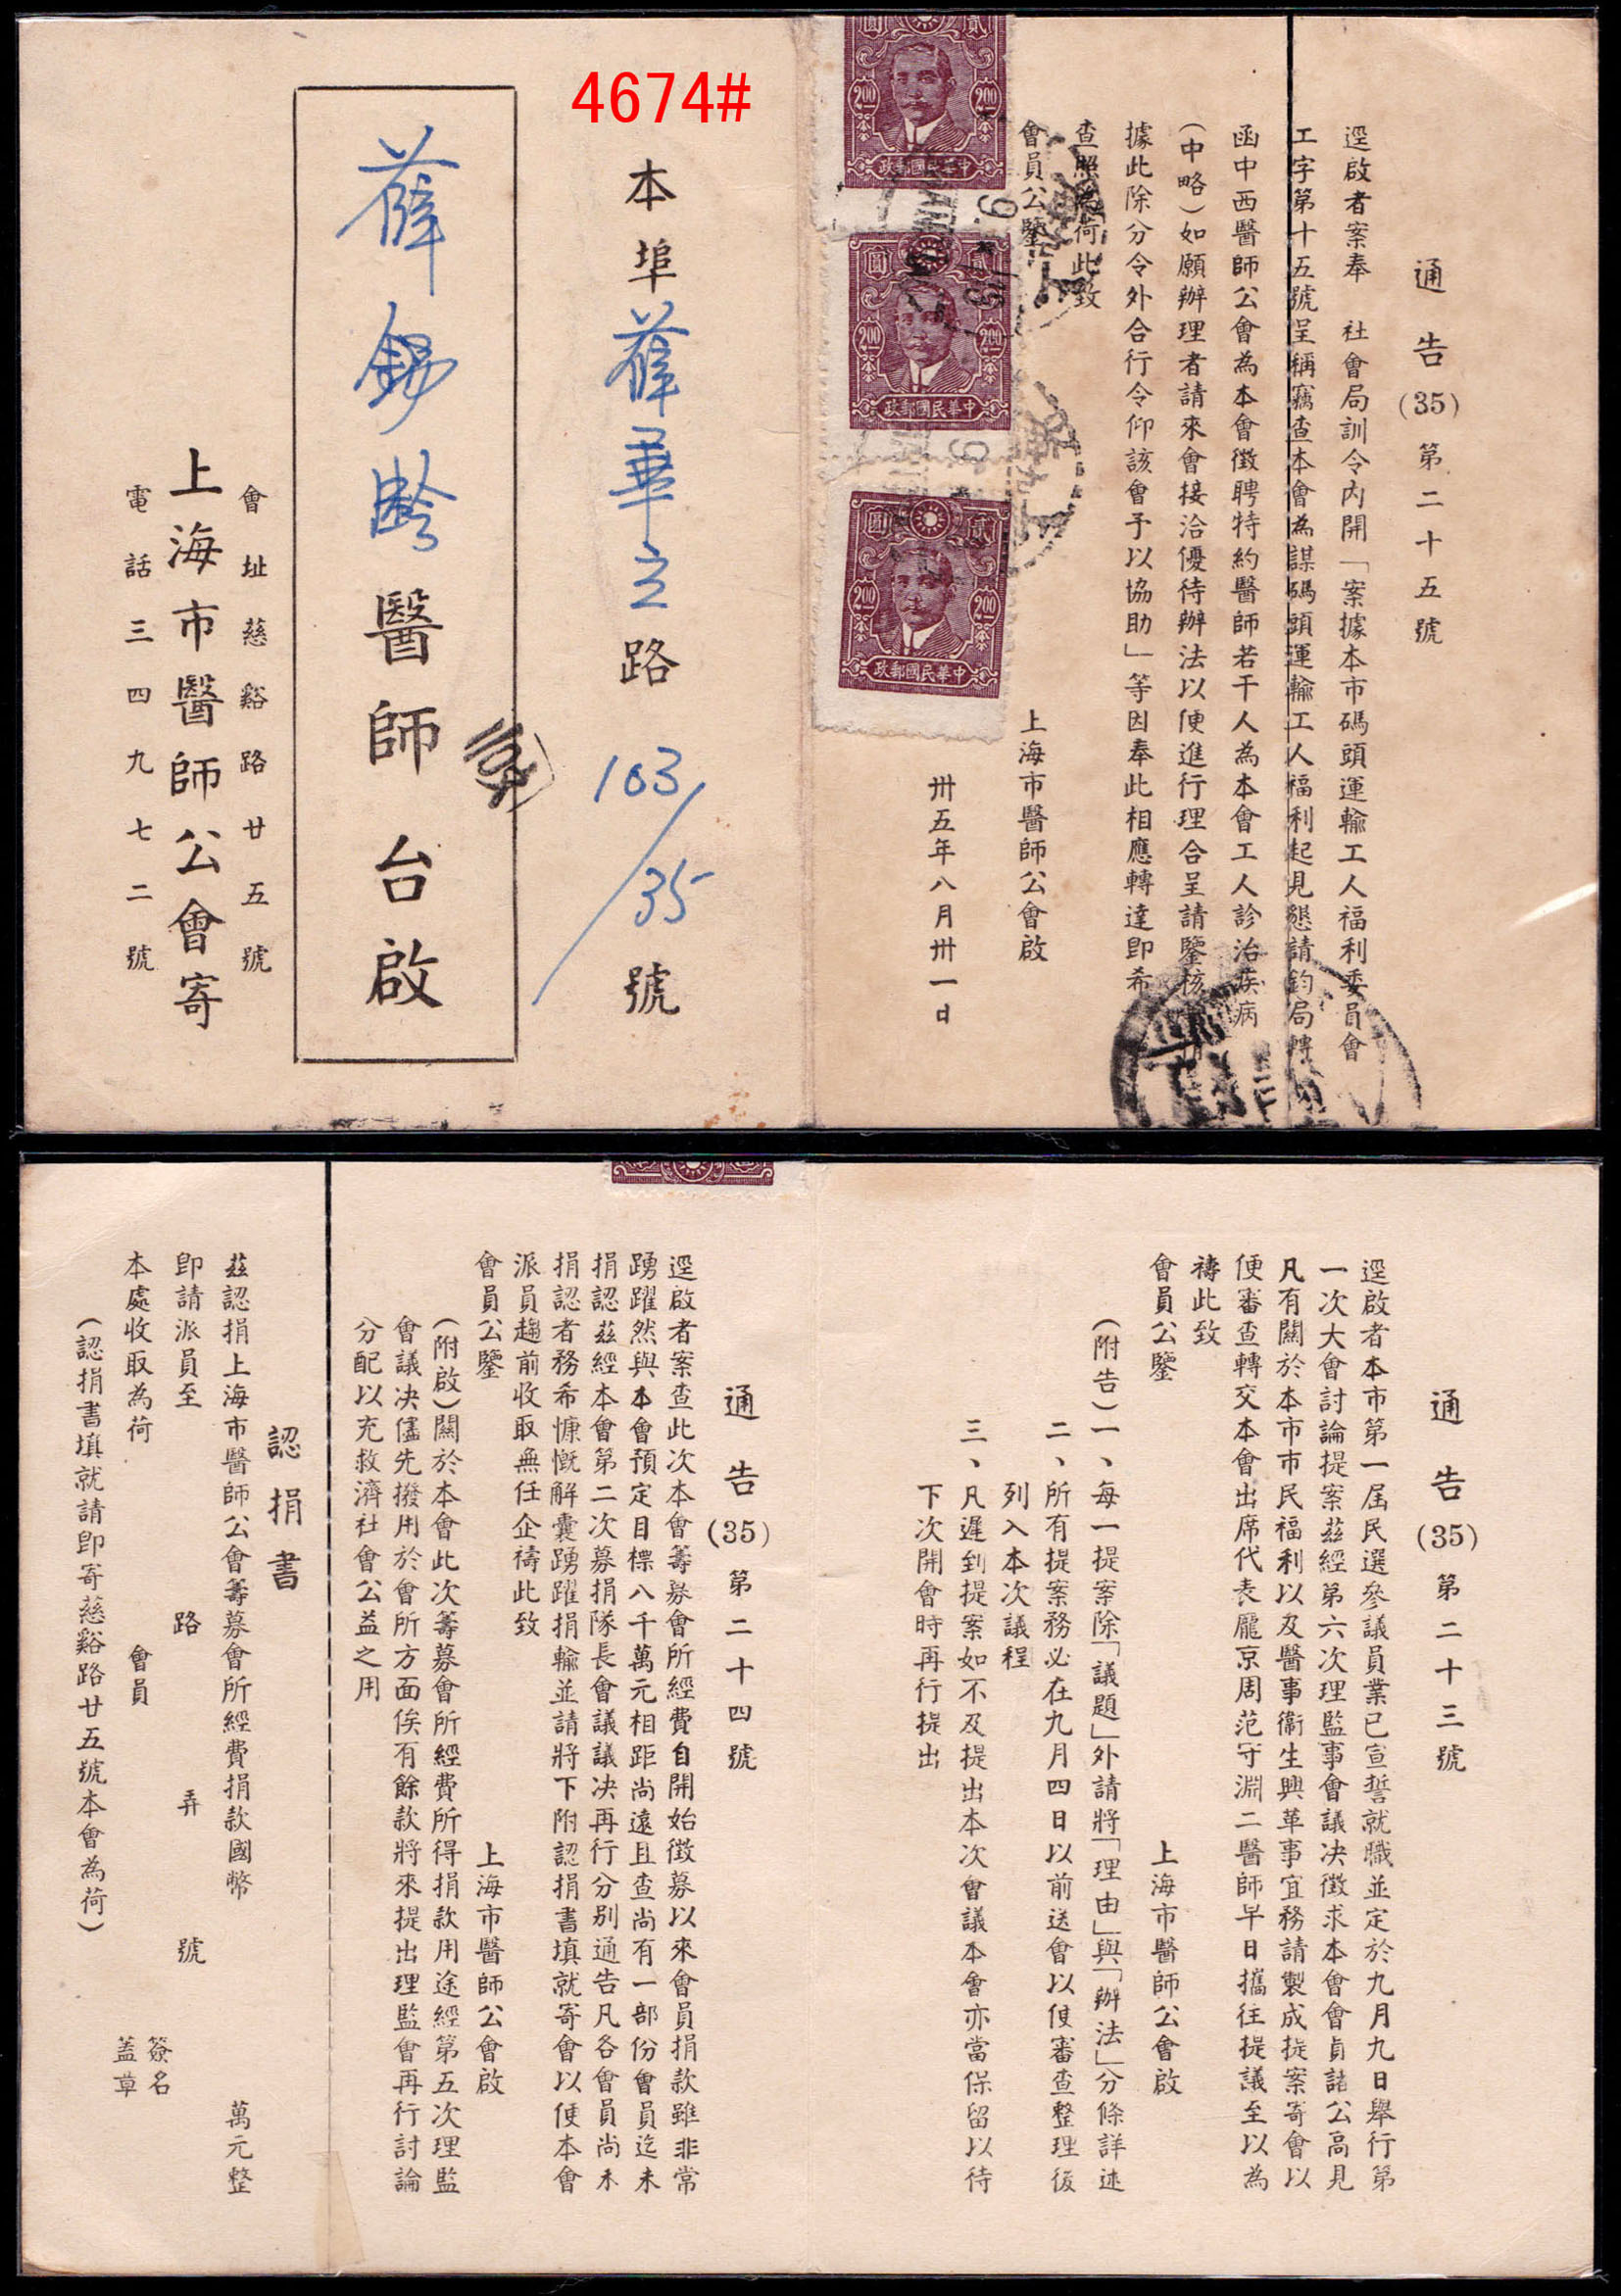 4674#
通告(35)第二十五號
逕啟者案奉　社會局訓令內開「案據本市碼頭運輸工人福利委員會
工字第十五號呈稱竊查本會為謀碼頭運輸工人福利起見懇請鈞局轉
函中西醫師公會為本會徵聘特約醫師若干人為本會工人診治疾病
(中略)如願辦理者請來會接洽優待辦法以便進行理合呈請鑒核
據此除分令外合行令仰該會予以協助」等因奉此相應轉達即希
查照為荷此致
會員公鑒
上海市醫師公會啟
卅五年八月卅一日
圓 貳
200 200
中華民國郵政
圓 貳
200 200
中華民國郵政
圓 貳
200 200
中華民國郵政
本埠薛華立路103/35號
薛錫齡醫師台啟
會址慈谿路廿五號
上海市醫師公會寄
電話三四九七二號
通告(35)第二十三號
逕啟者本市第一屆民選參議員業已宣誓就職並定於九月九日舉行第
一次大會討論提案茲經第六次理監事會議決徵求本會會員諸公高見
凡有關於本市市民福利以及醫事衞生興革事宜務請製成提案寄會以
便審查轉交本會出席代表龐京周范守淵二醫師早日攜往提議至以為
禱此致
會員公鑒
上海市醫師公會啟
(附告)一、每一提案除「議題」外請將「理由」與「辦法」分條詳述
二、所有提案務必在九月四日以前送會以便審查整理後
列入本次議程
三、凡遲到提案如不及提出本次會議本會亦當保留以待
下次開會時再行提出
通告(35)第二十四號
逕啟者案查此次本會籌募會所經費自開始徵募以來會員捐款雖非常
踴躍然與本會預定目標八千萬元相距尚遠且查尚有一部份會員迄未
捐認茲經本會第二次募捐隊長會議議決再行分別通告凡各會員尚未
捐認者務希慷慨解囊踴躍捐輸並請將下附認捐書填就寄會以便本會
派員趨前收取無任企禱此致
會員公鑒
上海市醫師公會啟
(附啟)關於本會此次籌募會所經費所得捐款用途經第五次理監
會議決儘先撥用於會所方面俟有餘款將來提出理監會再行討論
分配以充救濟社會公益之用
認捐書
茲認捐上海市醫師公會籌募會所經費捐款國幣　萬元整
即請派員至　路　弄　號
本處收取為荷
會員　簽名蓋章
(認捐書填就請即寄慈谿路廿五號本會為荷)